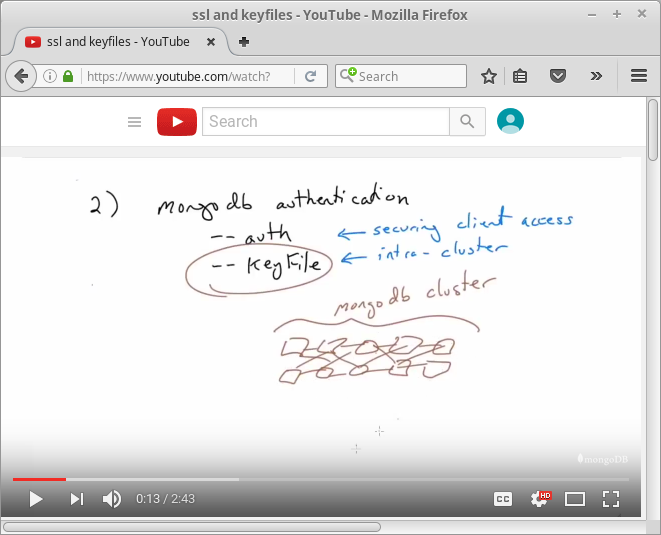 ssl and keyfiles - YouTube - Mozilla Firefox
ssl and keyfiles - YouTube
https://www.youtube.com/watch?
Search
Search
2) mongodb authentication
-- auth ← securing client access
-- keyFile ← intra-cluster
mongodb cluster
mongoDB
0:13 / 2:43
CC
HD